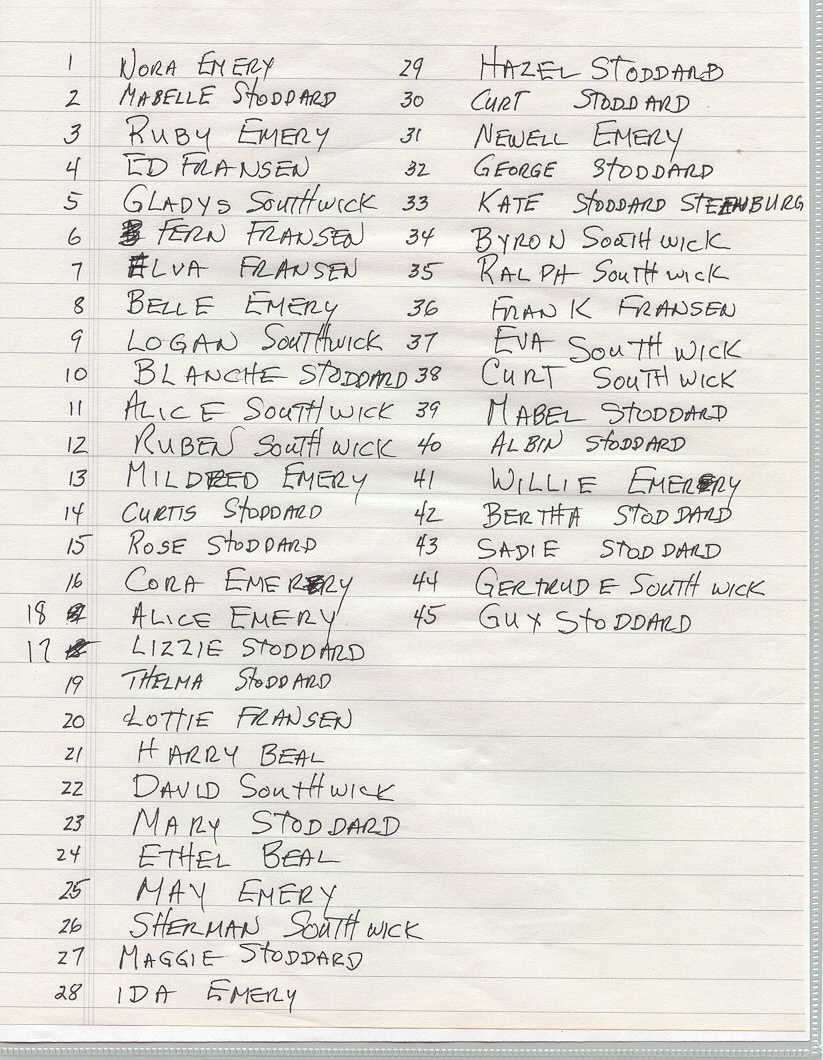 1 NORA EMERY
2 MABELLE STODDARD
3 RUBY EMERY
4 ED FRANSEN
5 GLADYS SOUTHWICK
6 FERN FRANSEN
7 ELVA FRANSEN
8 BELLE EMERY
9 LOGAN SOUTHWICK
10 BLANCHE STODDARD
11 ALICE SOUTHWICK
12 RUBEN SOUTHWICK
13 MILDRED EMERY
14 CURTIS STODDARD
15 ROSE STODDARD
16 CORA EMERY
18 ALICE EMERY
17 LIZZIE STODDARD
19 THELMA STODDARD
20 LOTTIE FRANSEN
21 HARRY BEAL
22 DAVID SOUTHWICK
23 MARY STODDARD
24 ETHEL BEAL
25 MAY EMERY
26 SHERMAN SOUTHWICK
27 MAGGIE STODDARD
28 IDA EMERY
29 HAZEL STODDARD
30 CURT STODDARD
31 NEWELL EMERY
32 GEORGE STODDARD
33 KATE STODDARD STEENBURG
34 BYRON SOUTHWICK
35 RALPH SOUTHWICK
36 FRANK FRANSEN
37 EVA SOUTHWICK
38 CURT SOUTHWICK
39 MABEL STODDARD
40 ALBIN STODDARD
41 WILLIE EMERY
42 BERTHA STODDARD
43 SADIE STODDARD
44 GERTRUDE SOUTHWICK
45 GUY STODDARD